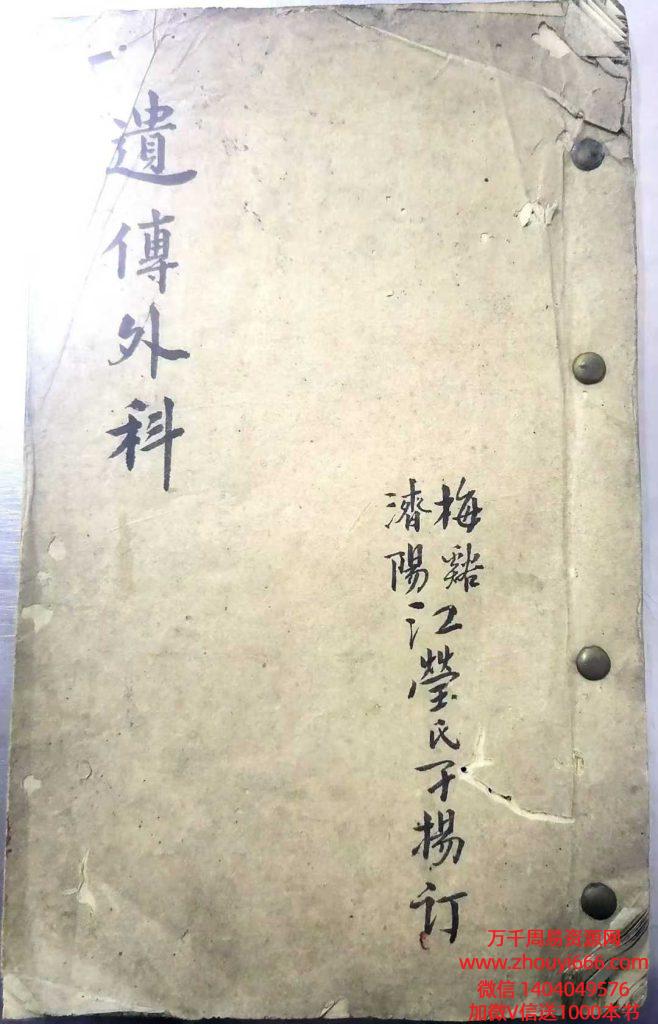 遺傳外科
梅谿
濟陽
江瑩氏子揚訂
万千周易资源网
www.zhouyi666.com
微信 1404049576
加微V信送1000本书